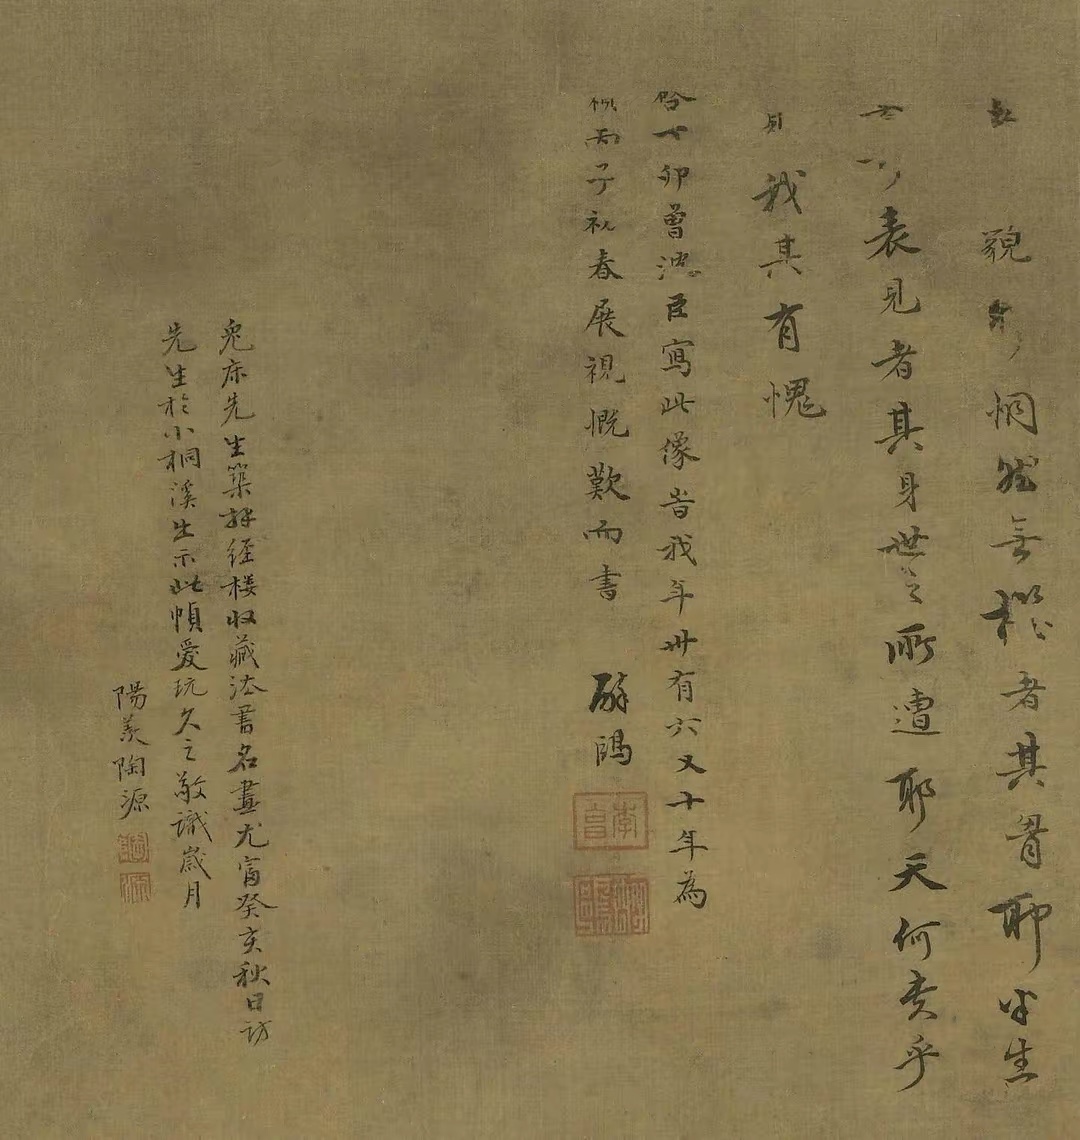 貌 恫然無㦛者其胷耶半生
表見者其身世之所遭耶天何责乎
我其有愧
丁卯曾澸臣寫此像旹我年卅有六又十年為
丙子初春展視慨歎而書 醉鷗
兎床先生築拜經楼收藏法書名畫尤富癸亥秋日訪
先生於小桐溪出示此幀愛玩久之敬識歲月
陽羡陶源